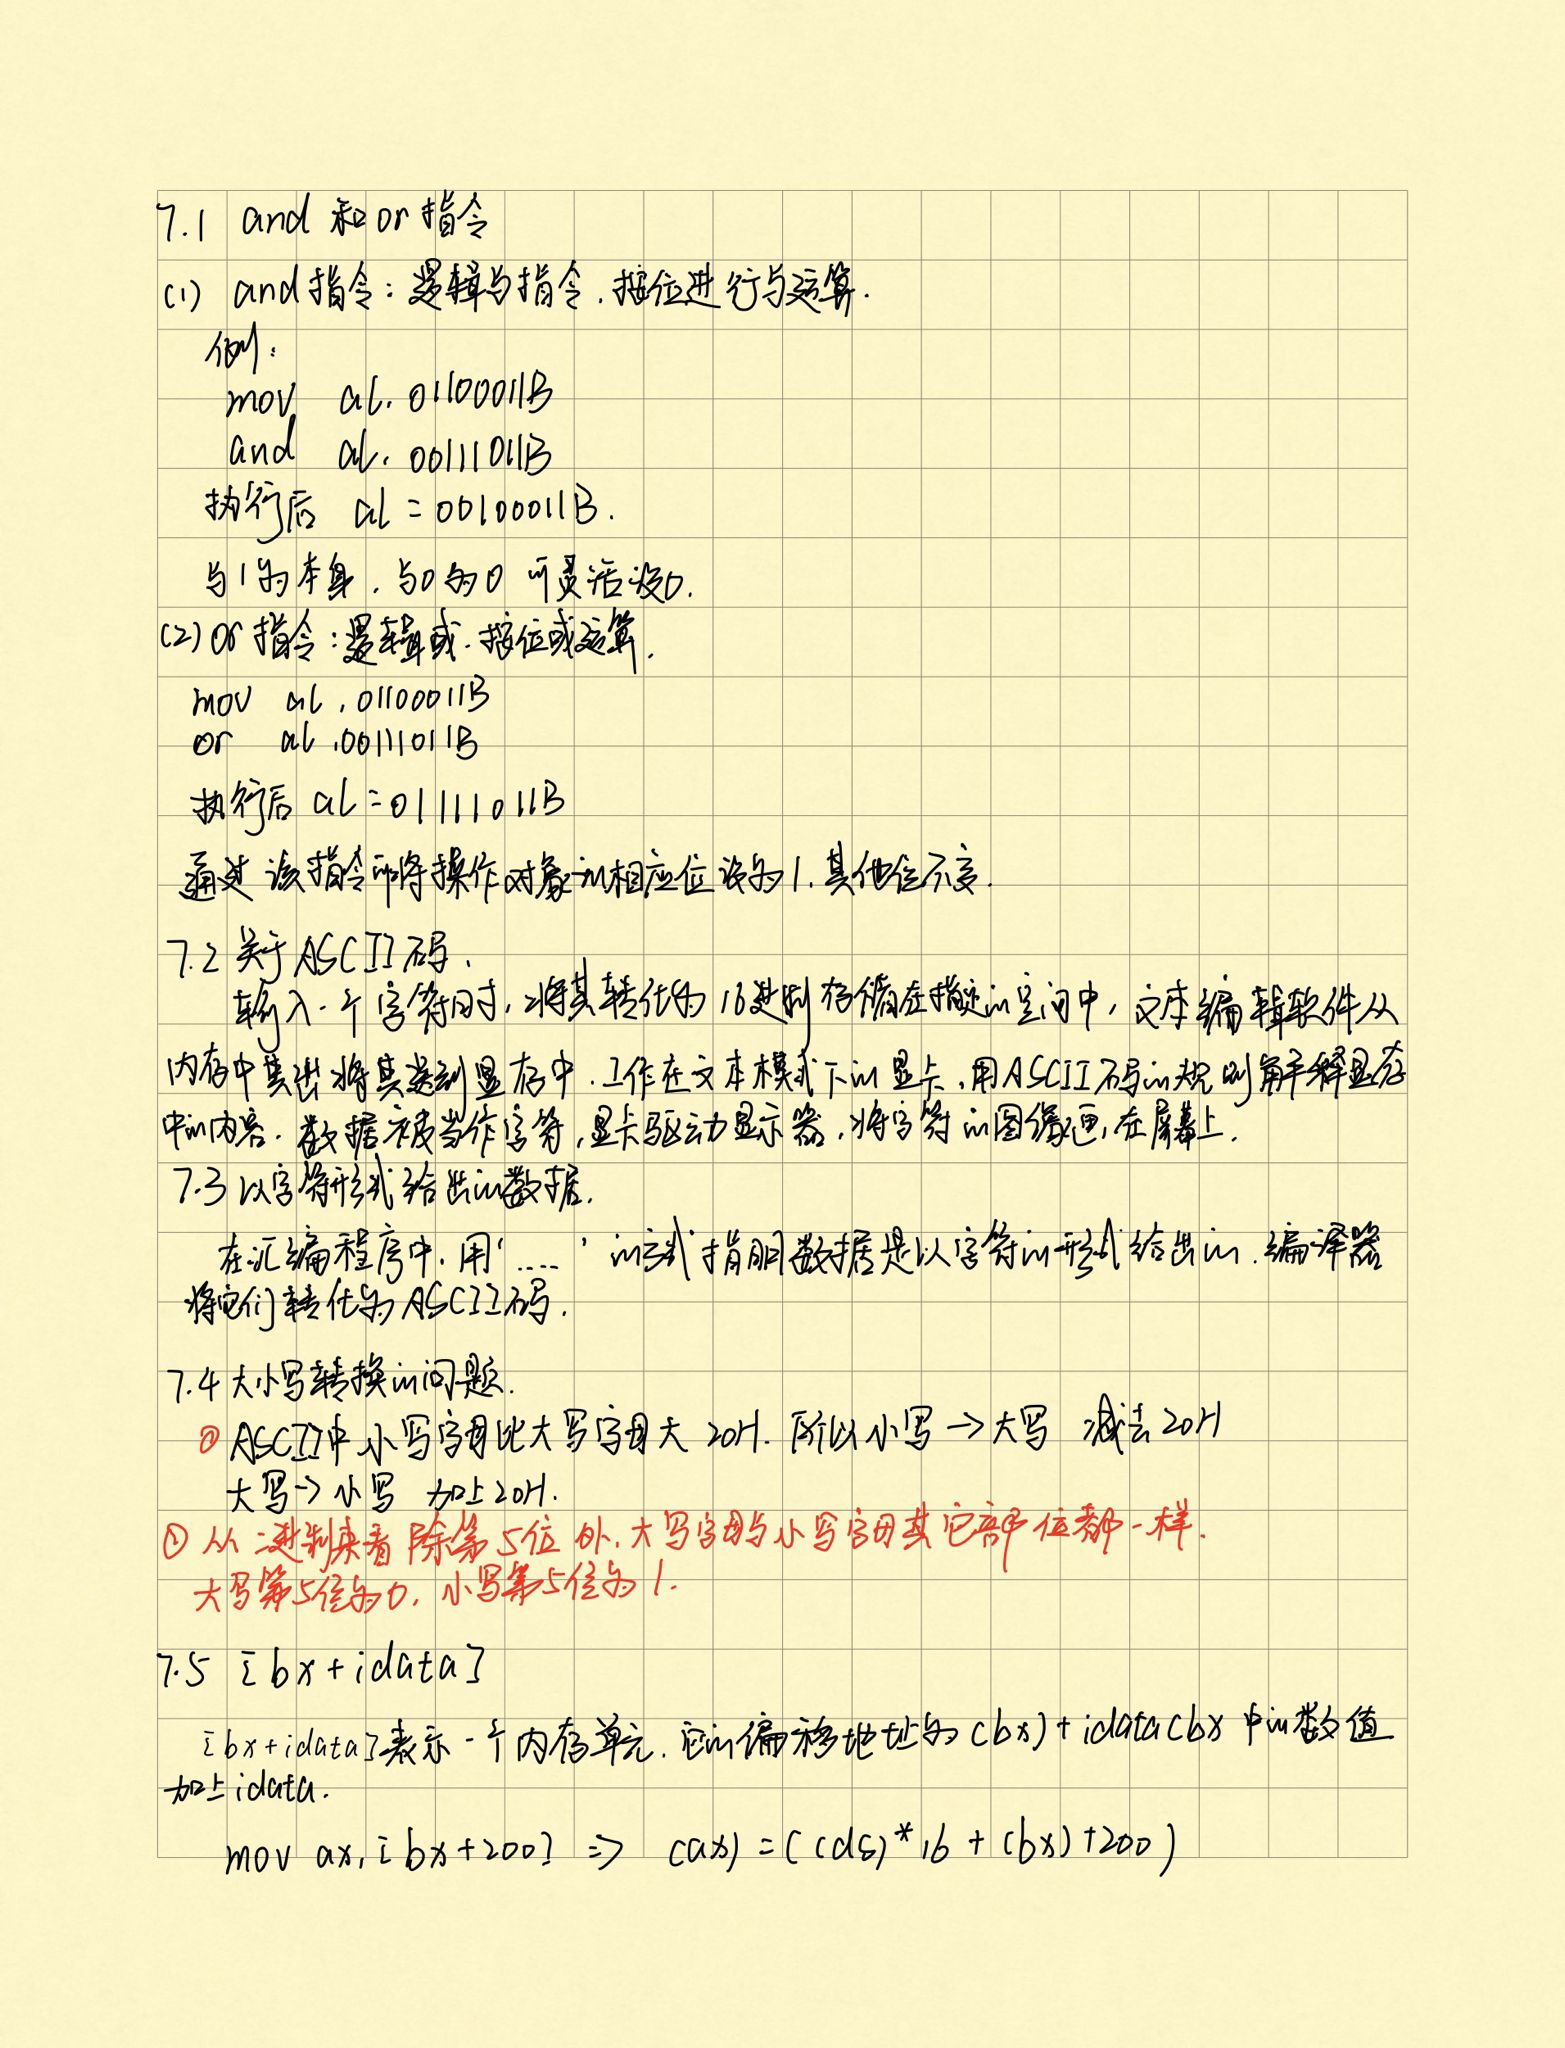 7.1 and 和or指令
(1) and指令：逻辑与指令，按位进行与运算.
例：
mov al, 01100011B
and al, 00111011B
执行后 al = 00100011B.
与1为本身，与0为0 可灵活设0.
(2) or指令：逻辑或，按位或运算.
mov al, 01100011B
or al, 00111011B
执行后 al = 01111011B
通过该指令可将操作对象的相应位设为1，其他位不变.
7.2 关于ASCII码.
输入一个字符时，将其转化为16进制存储在指定的空间中，文本编辑软件从
内存中其出将其送到显存中. 工作在文本模式下的显卡，用ASCII码的规则解释显存
中的内容. 数据被当作字符，显卡驱动显示器，将字符的图像画在屏幕上.
7.3 以字符形式给出的数据.
在汇编程序中，用'....'的方式指明数据是以字符的形式给出的. 编译器
将它们转化为ASCII码.
7.4 大小写转换的问题.
ASCII中小写字母比大写字母大 20H. 所以小写→大写 减去20H
大写→小写 加上20H.
① 从二进制来看 除第5位外，大写字母与小写字母其它部位都一样.
大写第5位为0，小写第5位为1.
7.5 [bx+idata]
[bx+idata]表示一个内存单元. 它的偏移地址为(bx)+idata(bx中的数值
加上idata.
mov ax, [bx+200] => (ax) = ((ds)*16 + (bx)+200)